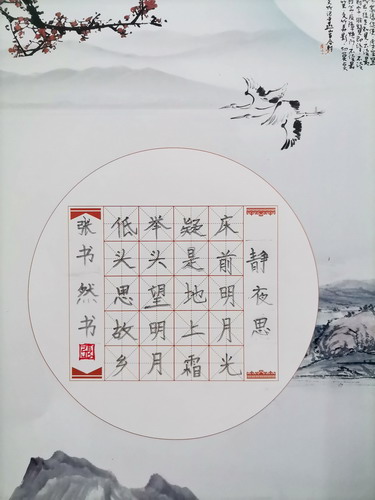 静夜思
床前明月光
疑是地上霜
举头望明月
低头思故乡
张书然书